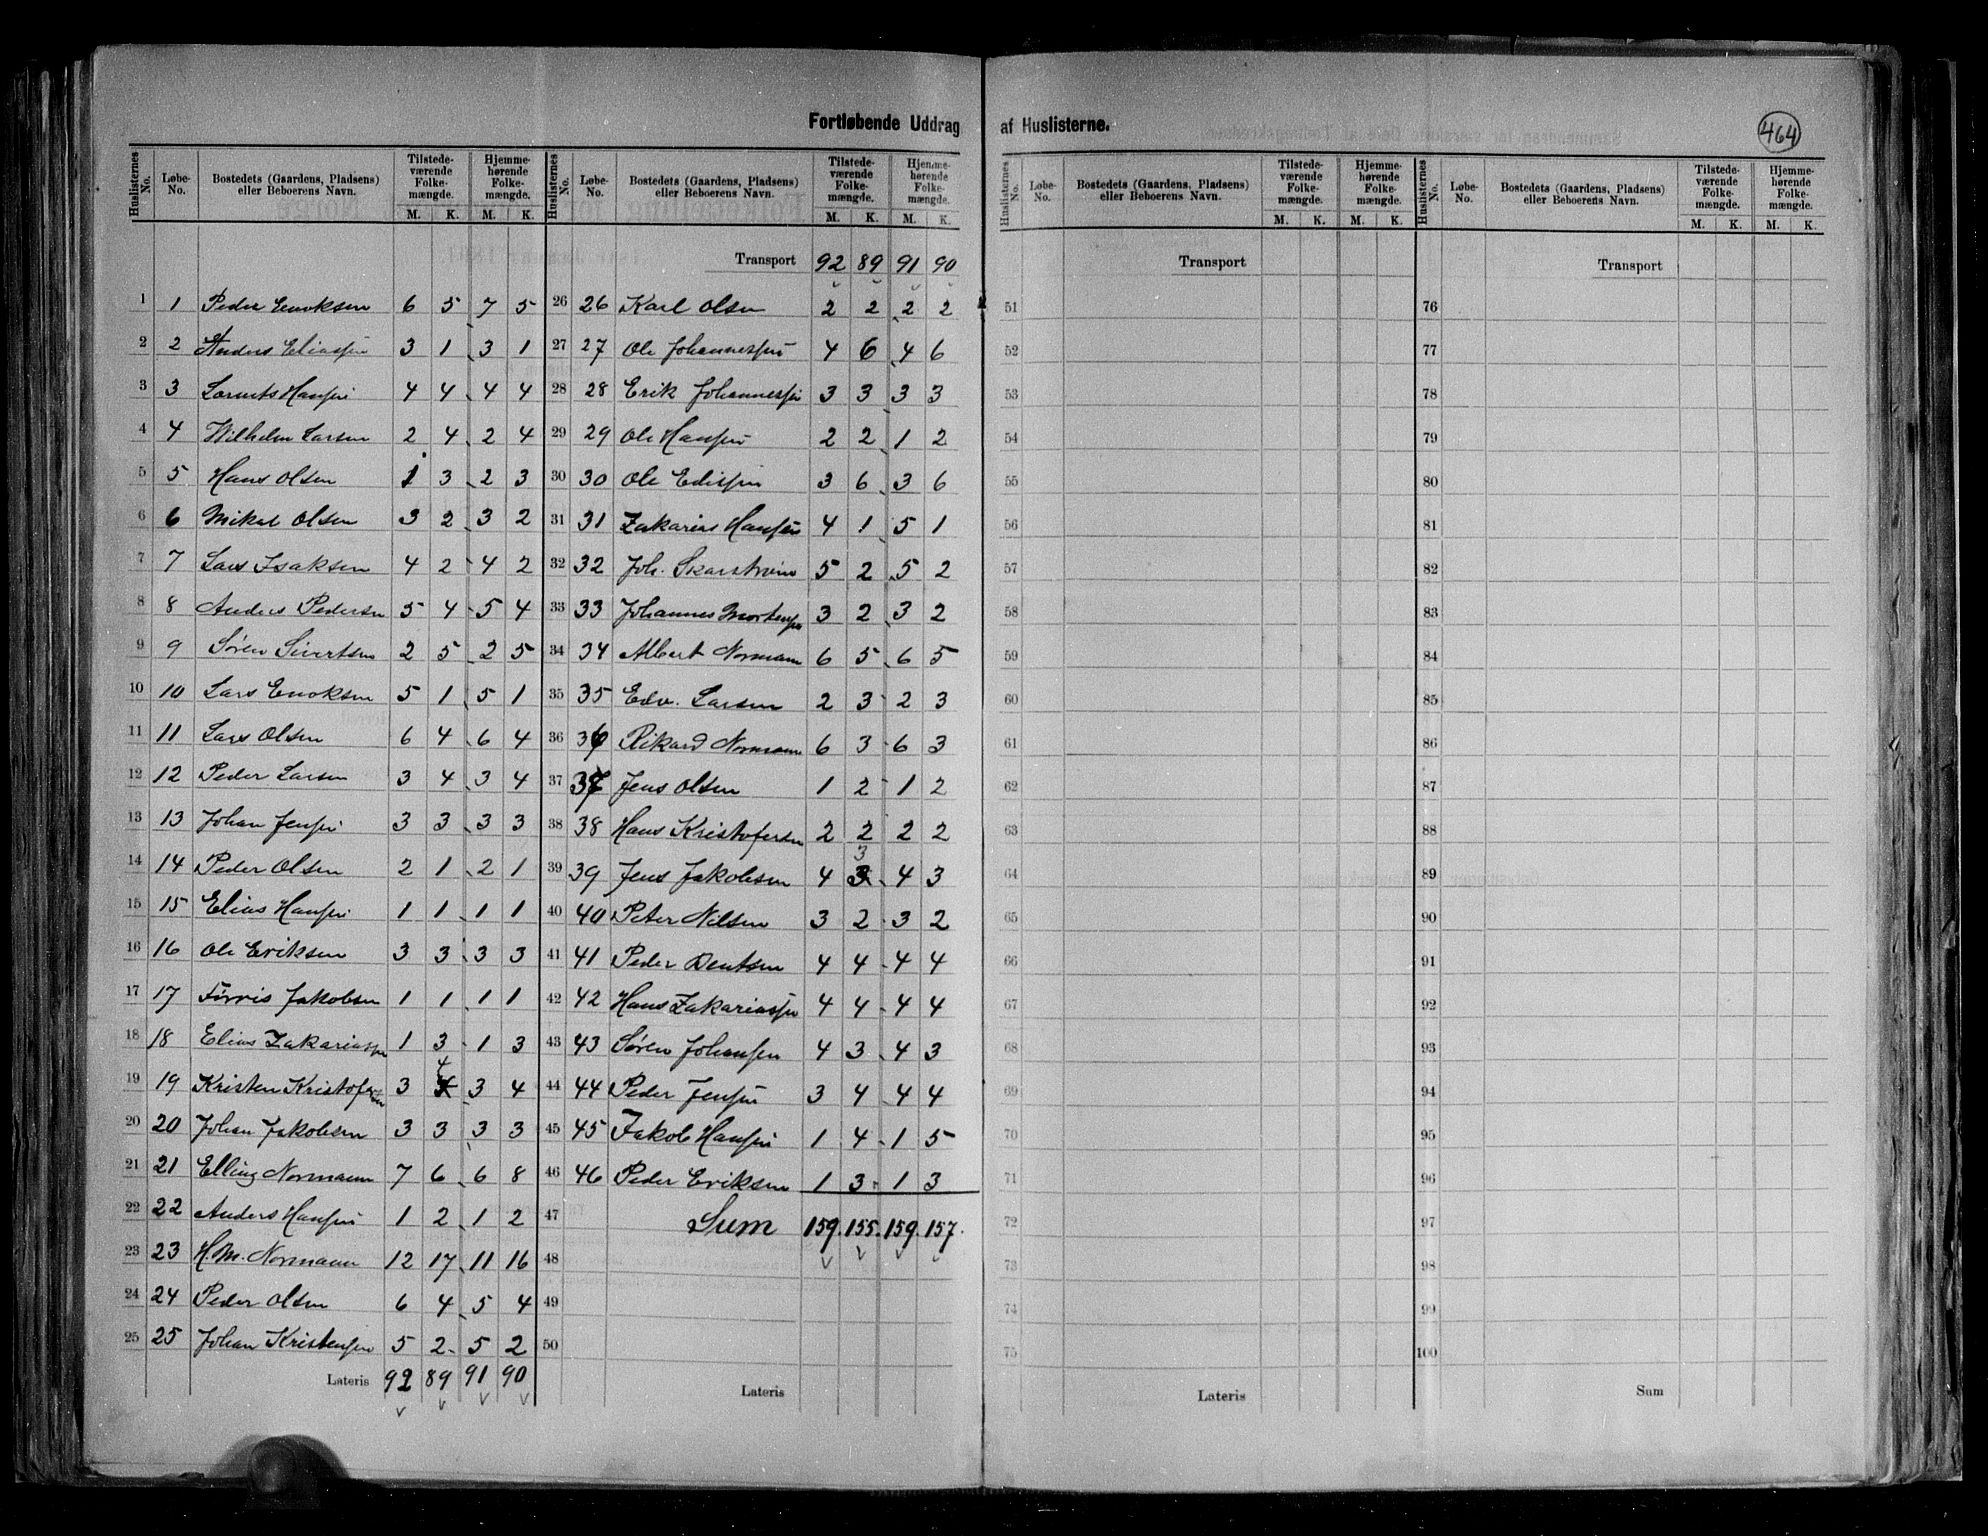 Fortløbende Uddrag af Huslisterne.
464
Huslisternes No. Løbe-No. Bostedets (Gaardens, Pladsens) eller Beboerens Navn. Tilstedeværende Folkemængde. M. K. Hjemmehørende Folkemængde. M. K.
1 1 Peder Enoksen 6 5 7 5
2 2 Anders Eliassen 3 1 3 1
3 3 Lornts Hansen 4 4 4 4
4 4 Wilhelm Larsen 2 4 2 4
5 5 Hans Olsen 1 3 2 3
6 6 Mikal Olsen 3 2 3 2
7 7 Lars Isaksen 4 2 4 2
8 8 Anders Pedersen 5 4 5 4
9 9 Søren Sivertsen 2 5 2 5
10 10 Lars Enoksen 5 1 5 1
11 11 Lars Olsen 6 4 6 4
12 12 Peder Larsen 3 4 3 4
13 13 Johan Jensen 3 3 3 3
14 14 Peder Olsen 2 1 2 1
15 15 Elias Hansen 1 1 1 1
16 16 Ole Eriksen 3 3 3 3
17 17 Jakobsen 1 1 1 1
18 18 Elias Zakariassen 1 3 1 3
19 19 Kristen Kristofersen 3 4 3 4
20 20 Johan Jakobsen 3 3 3 3
21 21 Elling Normann 7 6 6 8
22 22 Anders Hansen 1 2 1 2
23 23 H.M. Normann 12 17 11 16
24 24 Peder Olsen 6 4 5 4
25 25 Johan Kristensen 5 2 5 2
Lateris 92 89 91 90
Huslisternes No. Løbe-No. Bostedets (Gaardens, Pladsens) eller Beboerens Navn. Tilstedeværende Folkemængde. M. K. Hjemmehørende Folkemængde. M. K.
Transport 92 89 91 90
26 26 Karl Olsen 2 2 2 2
27 27 Ole Johannessen 4 6 4 6
28 28 Erik Johannessen 3 3 3 3
29 29 Ole Hansen 2 2 1 2
30 30 Ole 3 6 3 6
31 31 Zakarias Hansen 4 1 5 1
32 32 Joh. Skarstrøm 5 2 5 2
33 33 Johannes Mortensen 3 2 3 2
34 34 Albert Normann 6 5 6 5
35 35 Edv. Larsen 2 3 2 3
36 36 Rikard Normann 6 3 6 3
37 37 Jens Olsen 1 2 1 2
38 38 Hans Kristofersen 2 2 2 2
39 39 Jens Jakobsen 4 3 4 3
40 40 Peter Nilsen 3 2 3 2
41 41 Peder Bentsen 4 4 4 4
42 42 Hans Zakariassen 4 4 4 4
43 43 Søren Johansen 4 3 4 3
44 44 Peder Jensen 3 4 4 4
45 45 Jakob Hansen 1 4 1 5
46 46 Peder Eriksen 1 3 1 3
47 Sum 159. 155. 159. 157.
48
49
50
Lateris
Huslisternes No. Løbe-No. Bostedets (Gaardens, Pladsens) eller Beboerens Navn. Tilstedeværende Folkemængde. M. K. Hjemmehørende Folkemængde. M. K.
Transport
51
52
53
54
55
56
57
58
59
60
61
62
63
64
65
66
67
68
69
70
71
72
73
74
75
Lateris
Huslisternes No. Løbe-No. Bostedets (Gaardens, Pladsens) eller Beboerens Navn. Tilstedeværende Folkemængde. M. K. Hjemmehørende Folkemængde. M. K.
Transport
76
77
78
79
80
81
82
83
84
85
86
87
88
89
90
91
92
93
94
95
96
97
98
99
100
Sum